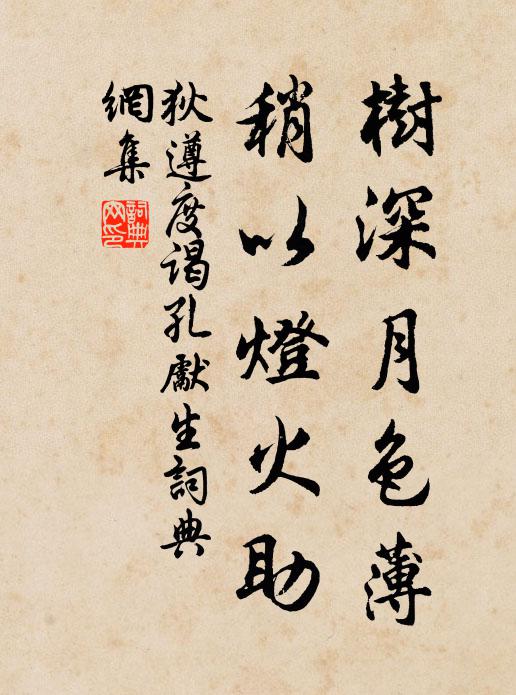 樹深月色薄
稍以燈火助
狄遵度謁孔獻生詞典
網集
詞典網印